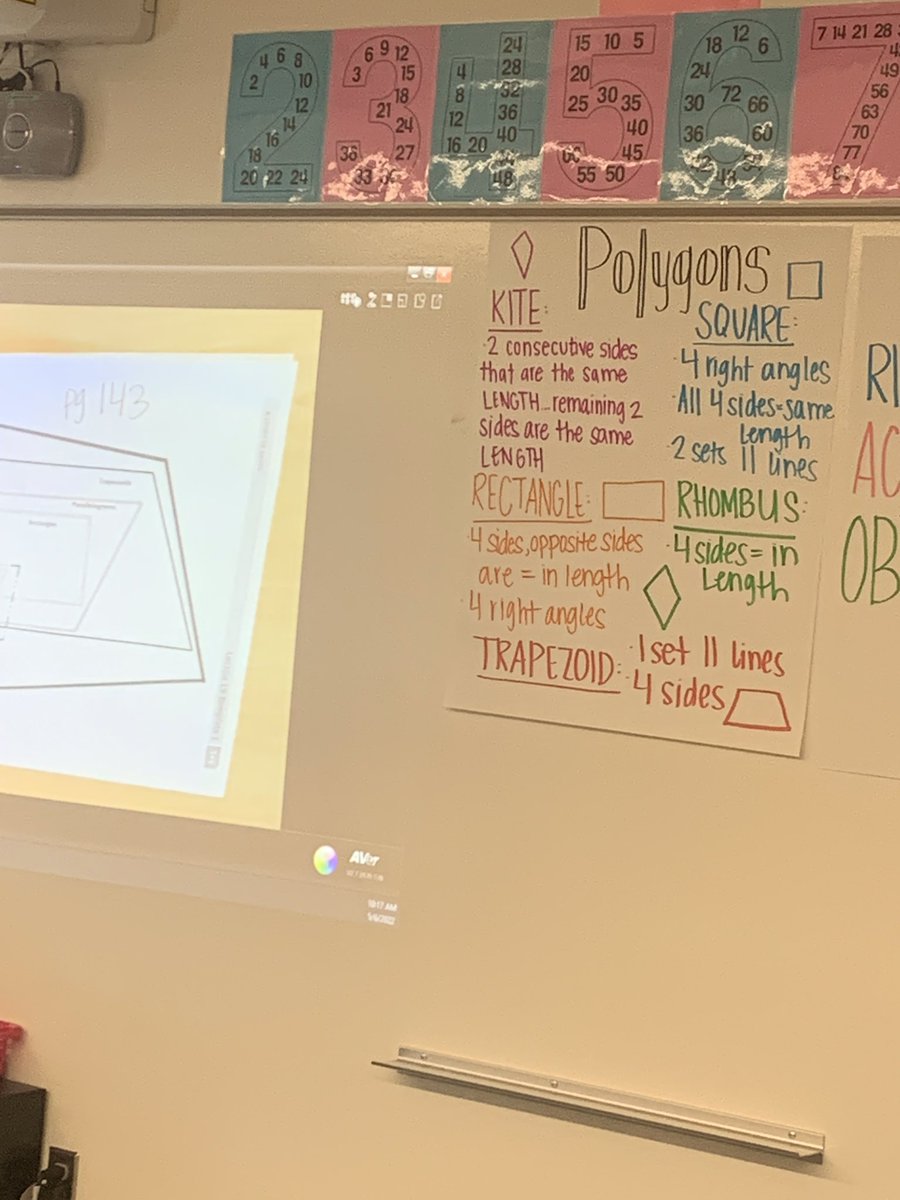 2 4 6 8 10 12 14 16 18 20 22 24
3 6 9 12 15 18 21 24 27 33 36
4 8 12 16 20 24 28 32 36 40 48
15 10 5 20 25 30 35 40 45 50 55 60
18 12 6 24 30 36 72 66 60
7 14 21 28
49
56
63
70
77
Polygons
KITE:
2 consecutive sides
that are the same
LENGTH...remaining 2
sides are the same
LENGTH
SQUARE:
4 right angles
All 4 sides=same
length
2 sets || lines
RECTANGLE:
4 sides, opposite sides
are = in length
4 right angles
RHOMBUS:
4 sides = in
Length
TRAPEZOID:
1 set || lines
4 sides
RI
AC
OB
pg 143
Trapezoids
Parallelograms
Rectangles
AVer
10:17 AM
5/6/2022